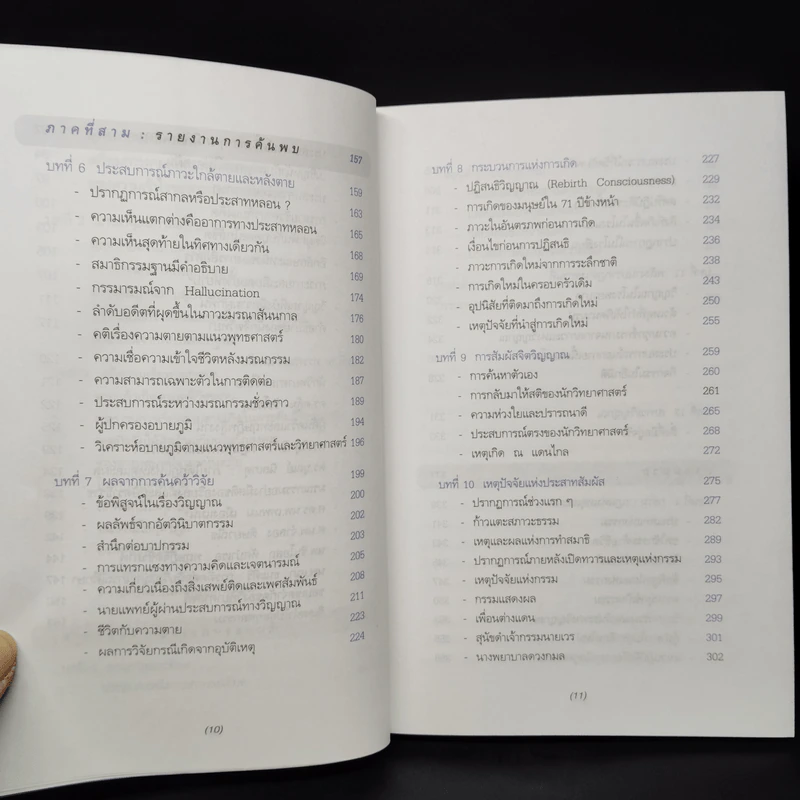 ภาคที่สาม : รายงานการค้นพบ 157
บทที่ 6 ประสบการณ์ภาวะใกล้ตายและหลังตาย 159
- ปรากฏการณ์สากลหรือประสาทหลอน ? 163
- ความเห็นแตกต่างคืออาการทางประสาทหลอน 165
- ความเห็นสุดท้ายในทิศทางเดียวกัน 168
- สมาธิกรรมฐานมีคำอธิบาย 169
- กรรมารมณ์จาก Hallucination 174
- ลำดับอดีตที่ผุดขึ้นในภาวะมรณาสันนกาล 176
- คติเรื่องความตายตามแนวพุทธศาสตร์ 180
- ความเชื่อความเข้าใจชีวิตหลังมรณกรรม 182
- ความสามารถเฉพาะตัวในการติดต่อ 187
- ประสบการณ์ระหว่างมรณกรรมชั่วคราว 189
- ผู้ปกครองอบายภูมิ 194
- วิเคราะห์อบายภูมิตามแนวพุทธศาสตร์และวิทยาศาสตร์ 196
บทที่ 7 ผลจากการค้นคว้าวิจัย 199
- ข้อพิสูจน์ในเรื่องวิญญาณ 200
- ผลลัพธ์จากอัตวินิบาตกรรม 202
- สำนึกต่อบาปกรรม 203
- การแทรกแซงทางความคิดและเจตนารมณ์ 205
- ความเกี่ยวเนื่องถึงสิ่งเสพย์ติดและเพศสัมพันธ์ 208
- นายแพทย์ผู้ผ่านประสบการณ์ทางวิญญาณ 211
- ชีวิตกับความตาย 223
- ผลการวิจัยกรณีเกิดจากอุบัติเหตุ 224
(10)
บทที่ 8 กระบวนการแห่งการเกิด 227
- ปฏิสนธิวิญญาณ (Rebirth Consciousness) 229
- การเกิดของมนุษย์ใน 71 ปีข้างหน้า 232
- ภาวะในอันตรภพก่อนการเกิด 234
- เงื่อนไขก่อนการปฏิสนธิ 236
- ภาวะการเกิดใหม่จากการระลึกชาติ 238
- การเกิดใหม่ในครอบครัวเดิม 243
- อุปนิสัยที่ติดมาถึงการเกิดใหม่ 250
- เหตุปัจจัยที่นำสู่การเกิดใหม่ 255
บทที่ 9 การสัมผัสจิตวิญญาณ 259
- การค้นหาตัวเอง 260
- การกลับมาให้สติของนักวิทยาศาสตร์ 261
- ความห่วงใยและปรารถนาดี 265
- ประสบการณ์ตรงของนักวิทยาศาสตร์ 268
- เหตุเกิด ณ แดนไกล 272
บทที่ 10 เหตุปัจจัยแห่งประสาทสัมผัส 275
- ปรากฏการณ์ช่วงแรก ๆ 277
- ก้าวแตะสภาวะธรรม 282
- เหตุและผลแห่งการทำสมาธิ 289
- ปรากฏการณ์ภายหลังเปิดทวารและเหตุแห่งกรรม 293
- เหตุปัจจัยแห่งกรรม 295
- กรรมแสดงผล 297
- เพื่อนต่างแดน 299
- สุนัขดำเจ้ากรรมนายเวร 301
- นางพยาบาลดวงกมล 302
(11)